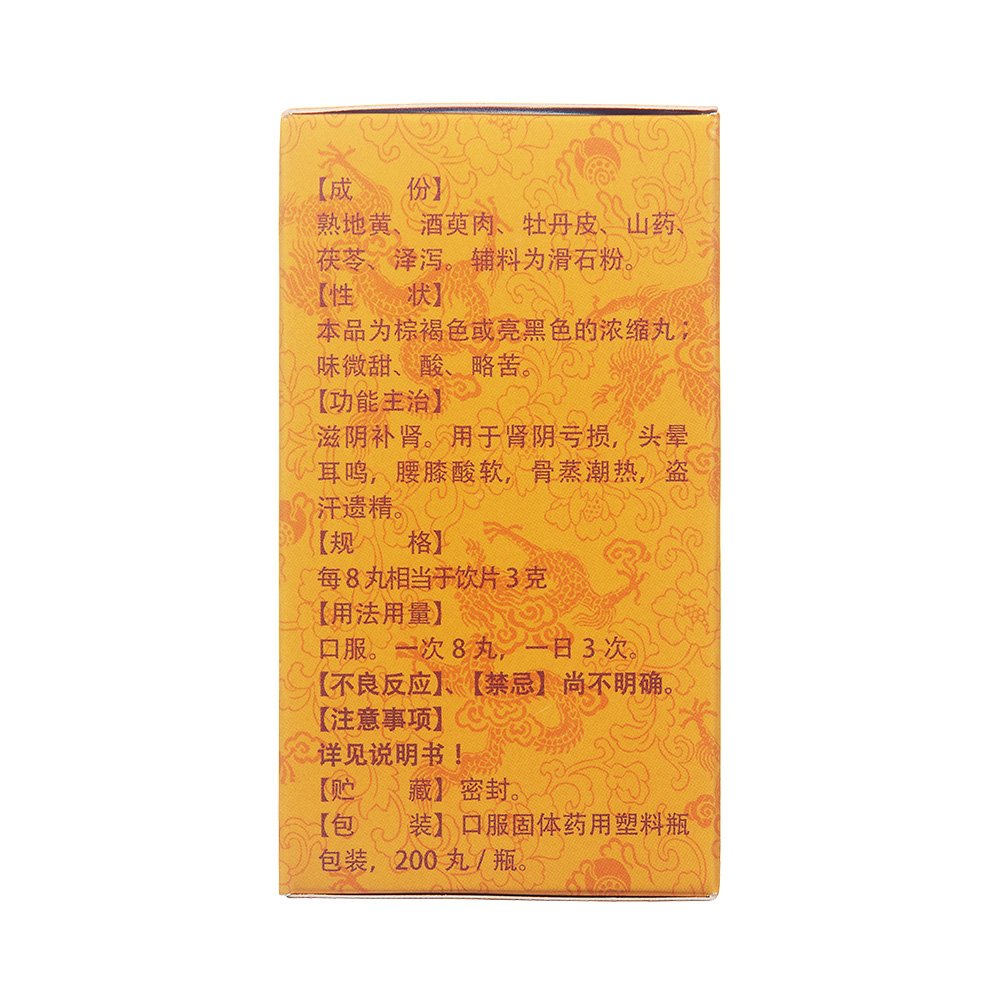 【成 份】
熟地黄、酒萸肉、牡丹皮、山药、
茯苓、泽泻。辅料为滑石粉。
【性 状】
本品为棕褐色或亮黑色的浓缩丸；
味微甜、酸、略苦。
【功能主治】
滋阴补肾。用于肾阴亏损，头晕
耳鸣，腰膝酸软，骨蒸潮热，盗
汗遗精。
【规 格】
每8丸相当于饮片3克
【用法用量】
口服。一次8丸，一日3次。
【不良反应】、【禁忌】尚不明确。
【注意事项】
详见说明书！
【贮 藏】密封。
【包 装】口服固体药用塑料瓶
包装，200丸/瓶。